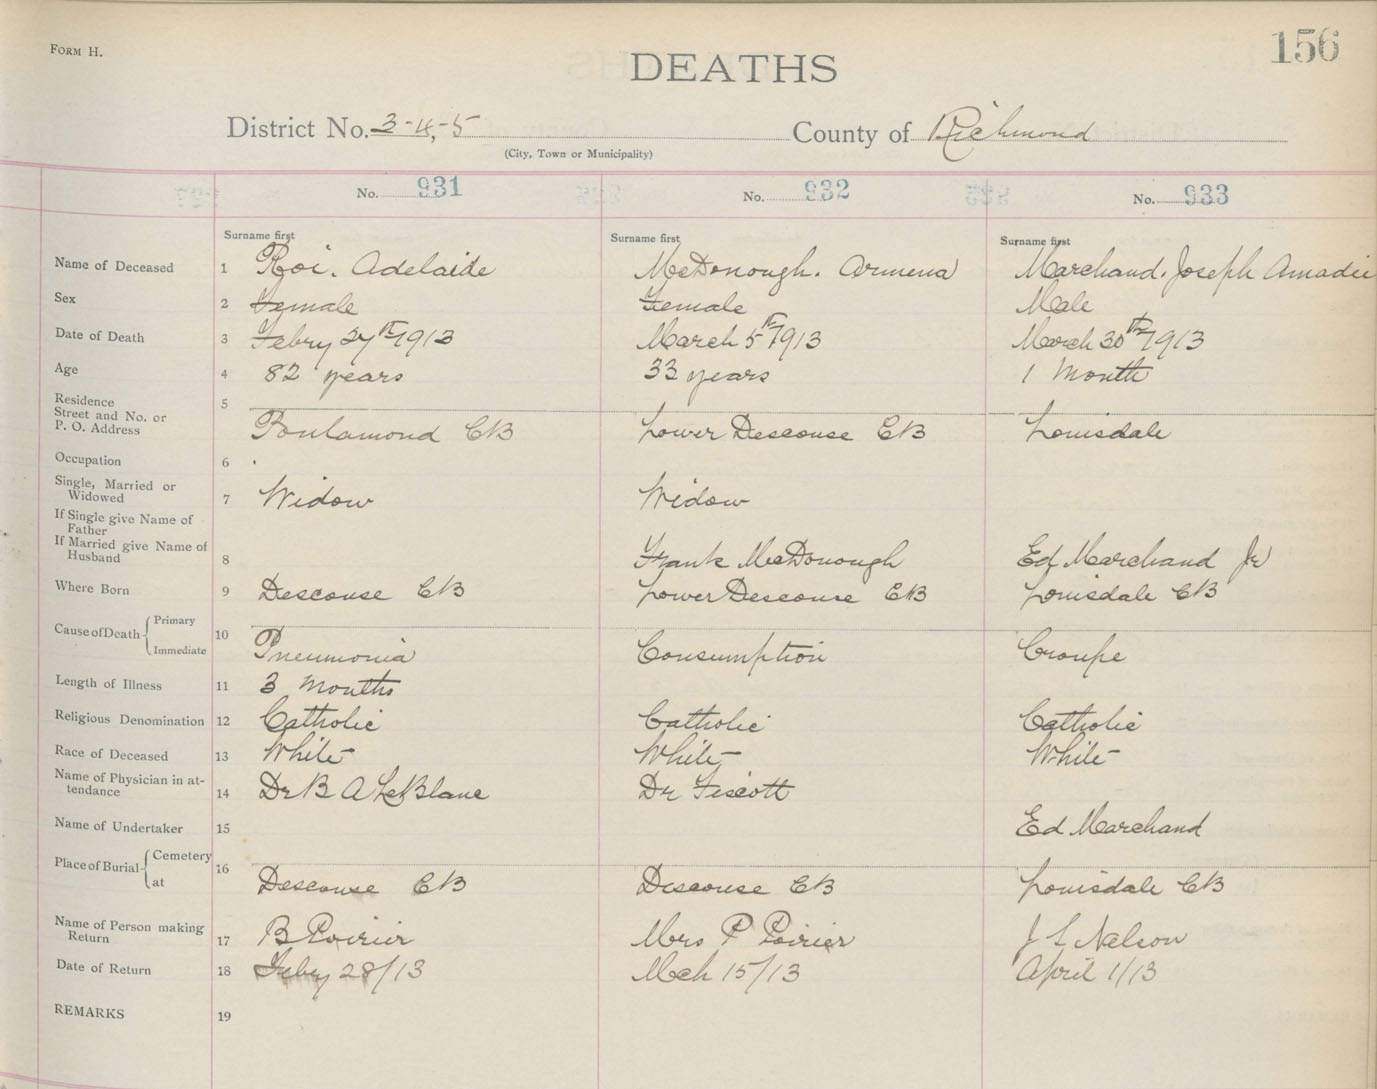 FORM H.
156
DEATHS
District No. 3-4,-5 County of Richmond
(City, Town or Municipality)
No. 931 No. 932 No. 933
Surname first Surname first Surname first
Name of Deceased 1 Roi. Adelaide McDonough. Armena Marchand. Joseph Amadie
Sex 2 Female Female Male
Date of Death 3 Febry 27th 1913 March 5th 1913 March 30th 1913
Age 4 82 years 33 years 1 Month
Residence
Street and No. or
P. O. Address 5 Poulamond CB Lower Descouse CB Louisdale
Occupation 6
Single, Married or
Widowed 7 Widow Widow
If Single give Name of
Father
If Married give Name of
Husband 8 Frank McDonough Ed Marchand Jr
Where Born 9 Descouse CB Lower Descouse CB Louisdale CB
Cause of Death { Primary
Immediate 10 Pneumonia Consumption Croupe
Length of Illness 11 3 Months
Religious Denomination 12 Catholic Catholic Catholic
Race of Deceased 13 White White White
Name of Physician in at-
tendance 14 Dr B A LeBlanc Dr
Name of Undertaker 15 Ed Marchand
Place of Burial { Cemetery
at 16 Descouse CB Descouse CB Louisdale CB
Name of Person making
Return 17 B Poirier Mrs P Poirier J L Nelson
Date of Return 18 Feby 28/13 Mch 15/13 April 1/13
REMARKS 19